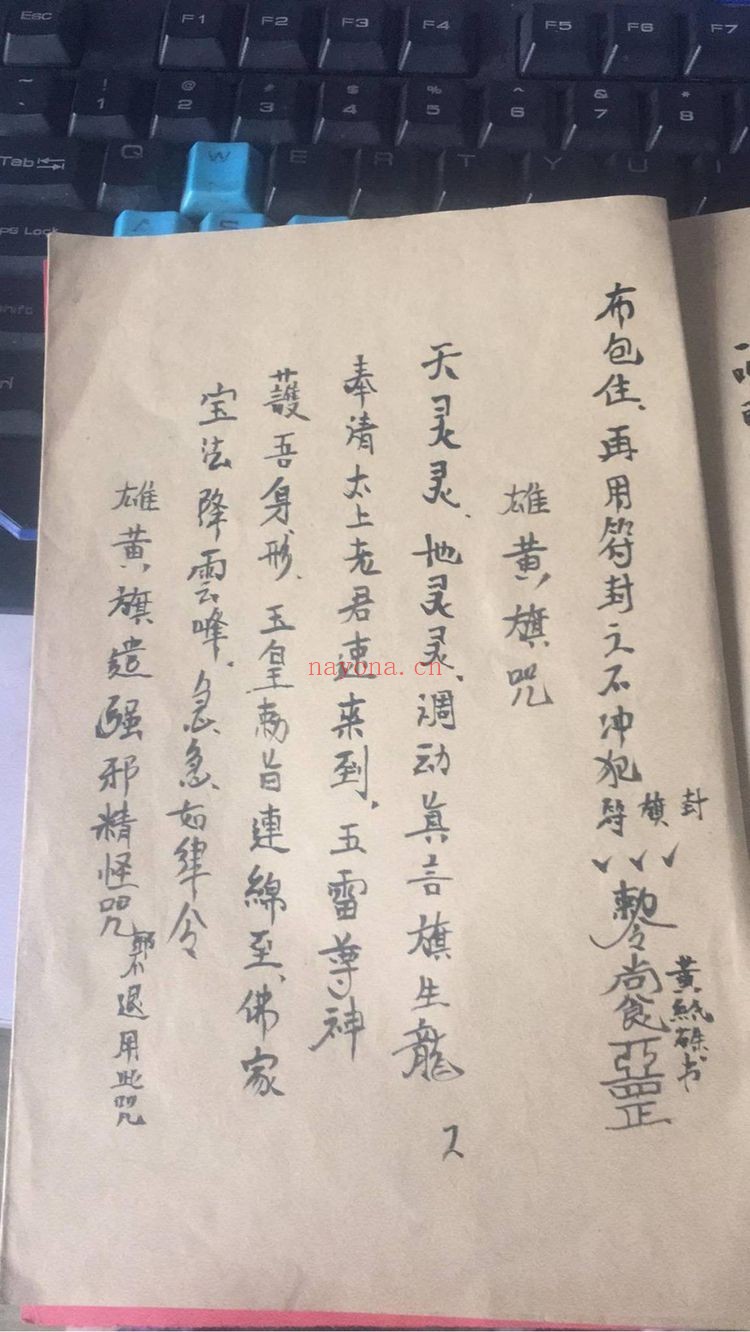 Esc F1 F2 F3 F4 F5 F6 F7
~ ! @ # $ % ^ & *
1 2 3 4 5 6 7 8
Tab Q W E R T Y U I
A S
布包住、再用符封之不冲犯
旗封
勅令尚食
黄纸硃书
雄黄旗咒
天灵灵、地灵灵、调动真言旗生龍
奉清太上老君速来到、五雷尊神
護吾身形、玉皇勅旨連綿至、佛家
宝法降雲峰、急急如律令
雄黄旗遣强邪精怪咒
退用此咒
nayona.cn